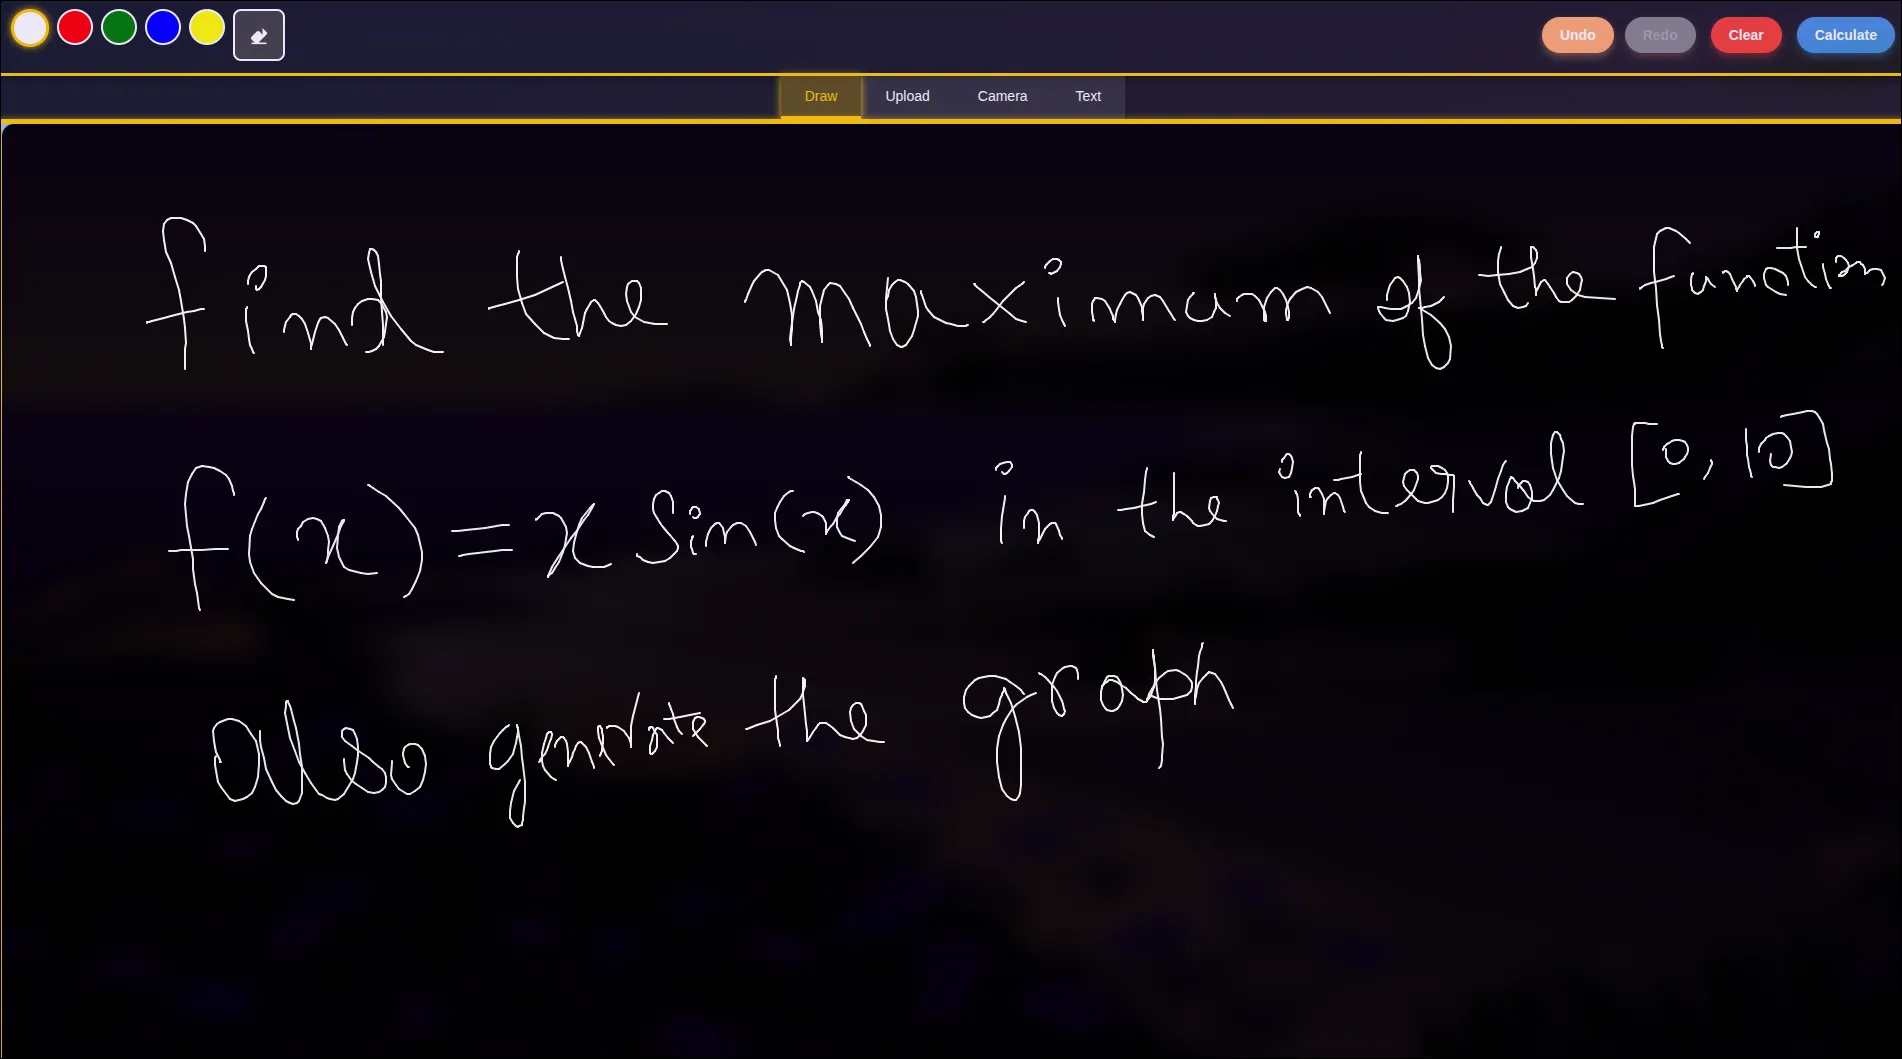 Undo Redo Clear Calculate
Draw Upload Camera Text
find the maximum of the function
f(x) = x sin(x) in the interval [0, 10]
also generate the graph